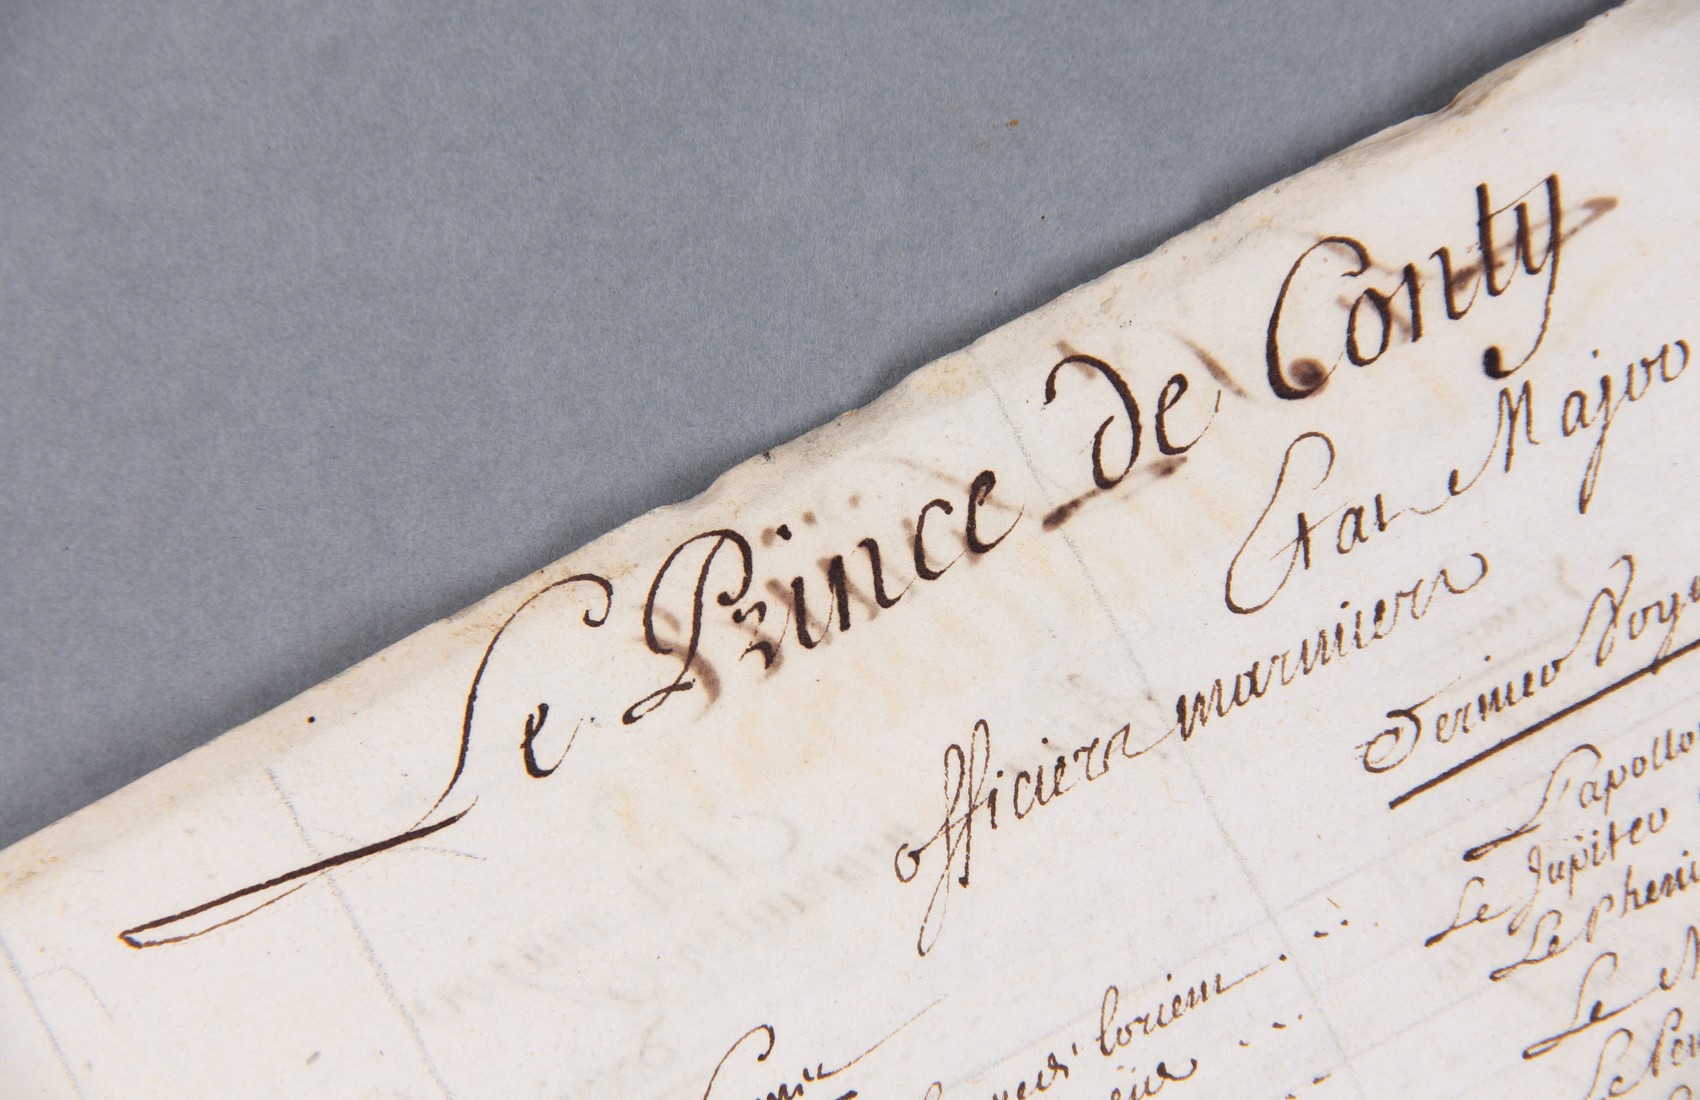 Le Prince de Conty
Etat Major
officiers mariniers
Dernier Voya
L'apollo
Le Jupiter
Le Pheni
Le
Le Pen
lorient